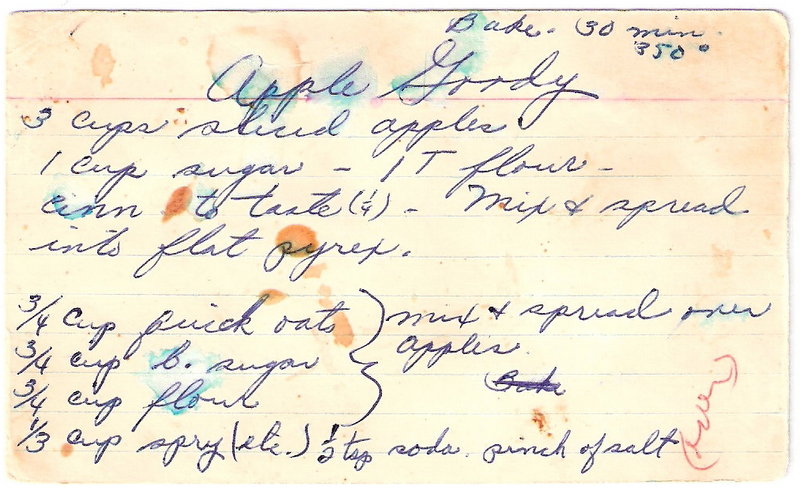 Bake - 30 min.
350°
Apple Goody
3 cups sliced apples
1 cup sugar - 1 T flour -
cinn to taste (1/4) - Mix & spread
into flat pyrex.
3/4 cup quick oats } mix & spread over
3/4 cup b. sugar apples.
3/4 cup flour Bake
1/3 cup spry (etc.) 1/2 tsp soda. pinch of salt
(over)